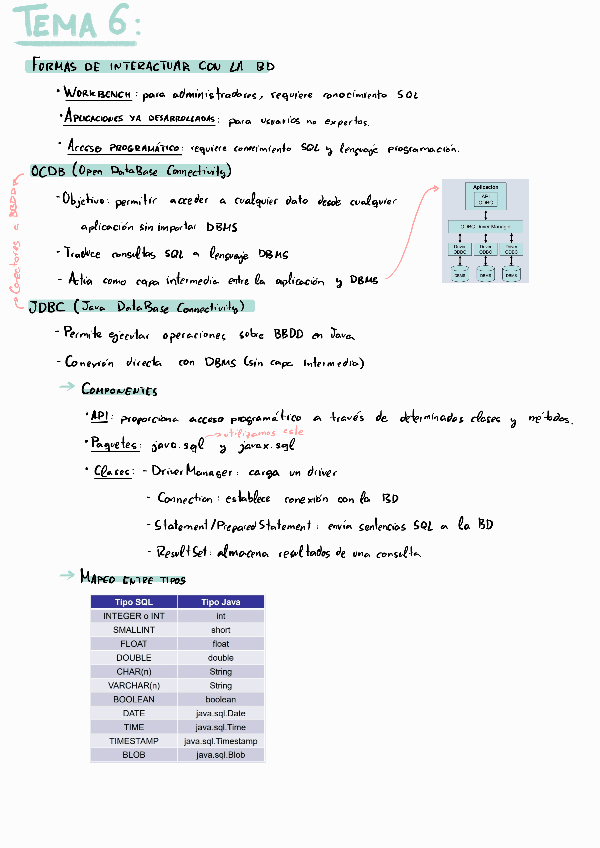 TEMA 6:
FORMAS DE INTERACTUAR CON LA BD
· WORKBENCH: para administradores, requiere conocimiento SQL
· APLICACIONES YA DESARROLLADAS: para usuarios no expertos.
· ACCESO PROGRAMÁTICO: requiere conocimiento SQL y lenguaje programación.
Conectores a BBDD
OCDB (Open DataBase Connectivity)
- Objetivo: permitir acceder a cualquier dato desde cualquier
aplicación sin importar DBMS
- Traduce consultas SQL a lenguaje DBMS
- Actúa como capa intermedia entre la aplicación y DBMS
Aplicación
API
ODBC
ODBC Driver Manager
Driver ODBC Driver ODBC Driver ODBC
DBMS DBMS DBMS
JDBC (Java DataBase Connectivity)
- Permite ejecutar operaciones sobre BBDD en Java
- Conexión directa con DBMS (sin capa intermedia)
→ COMPONENTES
· API: proporciona acceso programático a través de determinadas clases y métodos.
→ utilizamos este
· Paquetes: java.sql y javax.sql
· Clases: - DriverManager: carga un driver
- Connection: establece conexión con la BD
- Statement/PreparedStatement: envía sentencias SQL a la BD
- ResultSet: almacena resultados de una consulta
→ MAPEO ENTRE TIPOS
Tipo SQL Tipo Java
INTEGER o INT int
SMALLINT short
FLOAT float
DOUBLE double
CHAR(n) String
VARCHAR(n) String
BOOLEAN boolean
DATE java.sql.Date
TIME java.sql.Time
TIMESTAMP java.sql.Timestamp
BLOB java.sql.Blob